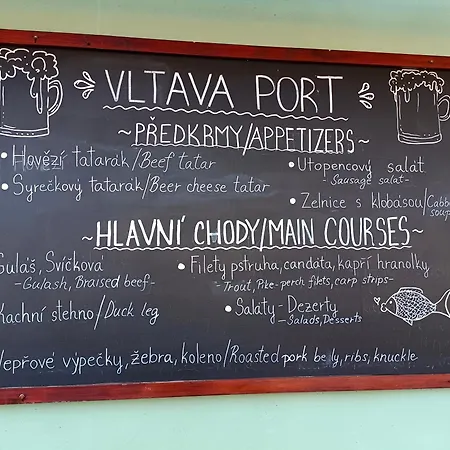 VLTAVA PORT
~PŘEDKRMY/APPETIZERS~
• Hovězí tatarák/Beef tatar
• Syrečkový tatarák/Beer cheese tatar
• Utopencový salát
- Sausage salat -
• Zelnice s klobásou/Cabb
soup
~HLAVNÍ CHODY/MAIN COURSES~
Guláš, Svíčková
- Gulash, Braised beef -
• Filety pstruha, candáta, kapří hranolky
- Trout, Pike-perch filets, carp strips -
Kachní stehno/Duck leg
• Saláty - Dezerty
- Salads, Desserts
Vepřové výpečky, žebra, koleno/Roasted pork be ly, ribs, knuckle